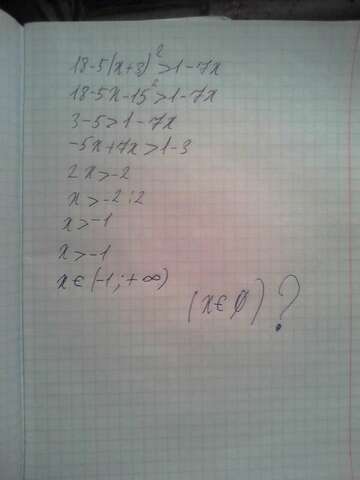 18-5(x+3)²>1-7x
18-5x-15²>1-7x
3-5>1-7x
-5x+7x>1-3
2x>-2
x>-2:2
x>-1
x>-1
x∈(-1;+∞)
(x∈∅)?